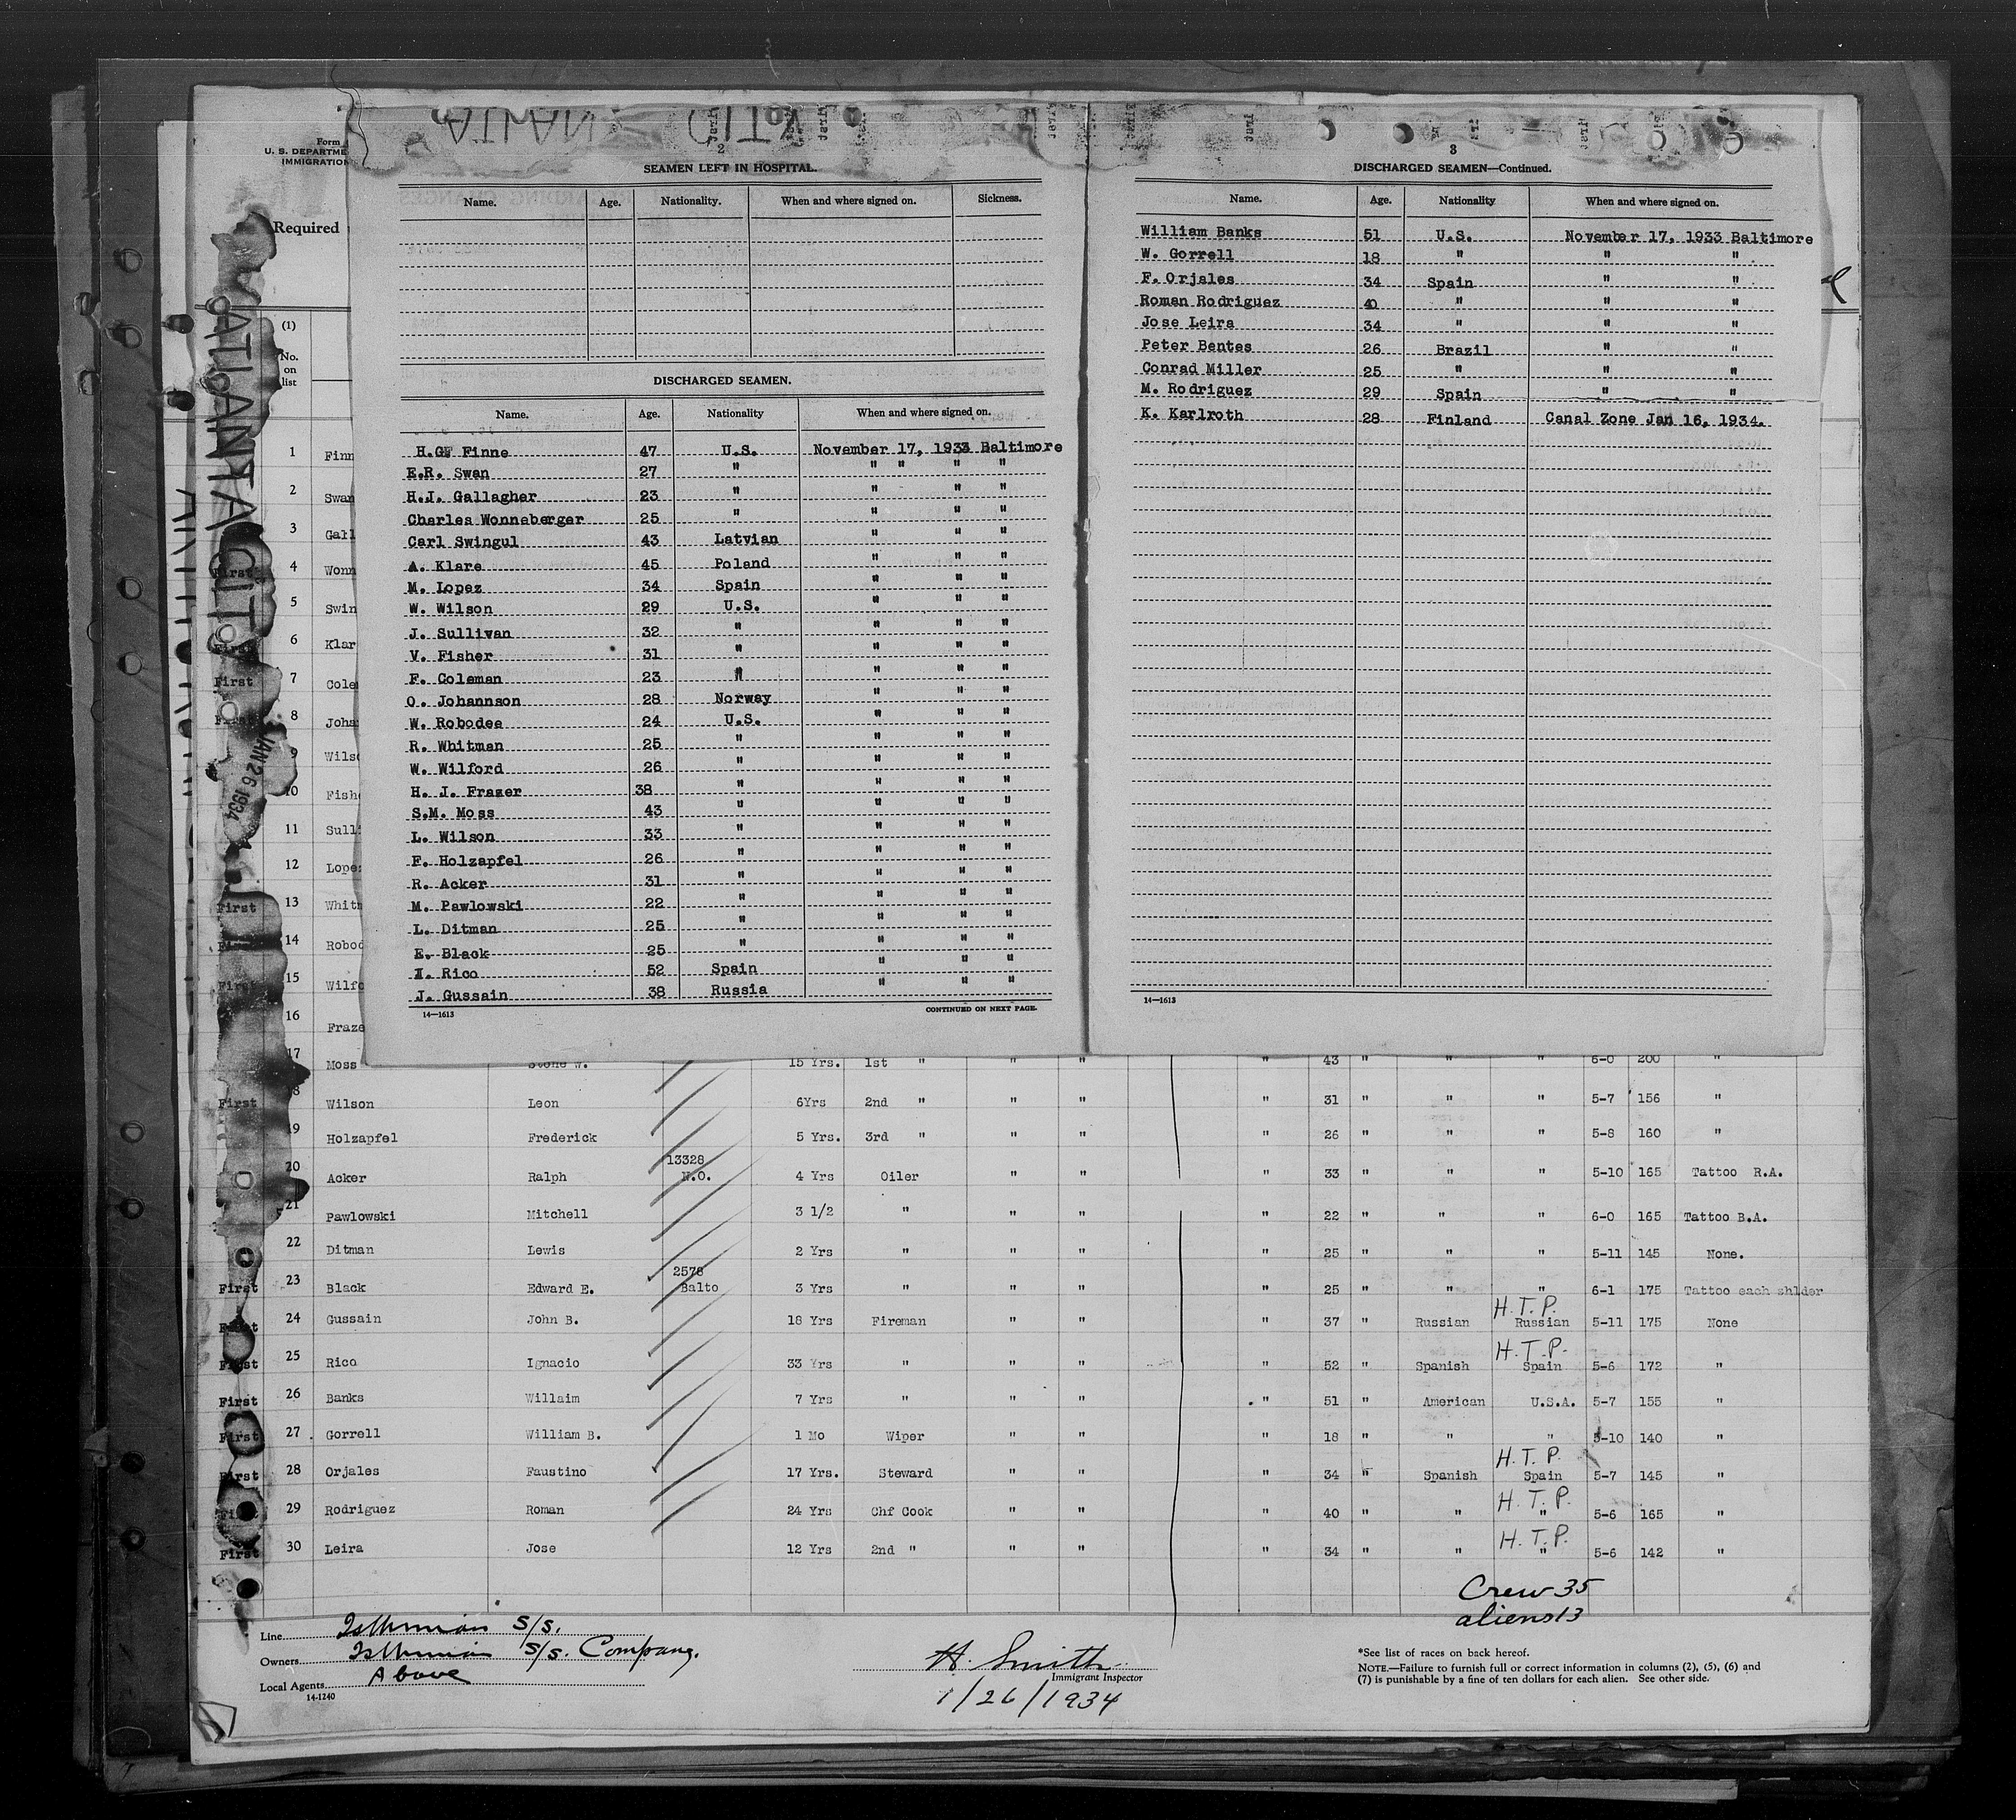 2
SEAMEN LEFT IN HOSPITAL.
Name. Age. Nationality. When and where signed on. Sickness.
DISCHARGED SEAMEN.
Name. Age. Nationality When and where signed on.
H.G. Finne 47 U.S. November 17, 1933 Baltimore
E.R. Swan 27 " " " " "
H.J. Gallagher 23 " " " "
Charles Wonneberger 25 " " " "
Carl Swingul 43 Latvian " " "
A. Klare 45 Poland " " "
M. Lopez 34 Spain " " "
W. Wilson 29 U.S. " " "
J. Sullivan 32 " " " "
V. Fisher 31 " " " "
F. Coleman 23 " " " "
O. Johannson 28 Norway " " "
W. Robodee 24 U.S. " " "
R. Whitman 25 " " " "
W. Wilford 26 " " " "
H. J. Frazer 38 " " " "
S.M. Moss 43 " " " "
L. Wilson 33 " " " "
F. Holzapfel 26 " " " "
R. Acker 31 " " " "
M. Pawlowski 22 " " " "
L. Ditman 25 " " " "
E. Black 25 " " " "
I. Rico 52 Spain " " "
J. Gussain 38 Russia " " "
14—1613 CONTINUED ON NEXT PAGE.
3
DISCHARGED SEAMEN—Continued.
Name. Age. Nationality When and where signed on.
William Banks 51 U.S. November 17, 1933 Baltimore
W. Gorrell 18 " " "
F. Orjales 34 Spain " "
Roman Rodriguez 40 " " "
Jose Leira 34 " " "
Peter Bentes 26 Brazil " "
Conrad Miller 25 " " "
M. Rodriguez 29 Spain " "
K. Karlroth 28 Finland Canal Zone Jan 16, 1934.
14—1613
Form
U. S. DEPARTME
IMMIGRATION
Required
(1)
No. on list
ATLANTA CITY
JAN 26 1934
1 Finn
2 Swan
3 Gall
First 4 Wonn
5 Swin
First 6 Klar
First 7 Cole
First 8 Joha
9 Wilso
10 Fish
11 Sulli
12 Lope
First 13 Whitm
First 14 Robod
First 15 Wilfo
16 Fraze
17 Moss Stone W. 15 Yrs. 1st " " " " 43 " " " 6-0 200 "
First 18 Wilson Leon 6Yrs 2nd " " " " 31 " " " 5-7 156 "
19 Holzapfel Frederick 5 Yrs. 3rd " " " " 26 " " " 5-8 160 "
20 Acker Ralph 13328 N.O. 4 Yrs Oiler " " " 33 " " " 5-10 165 Tattoo R.A.
21 Pawlowski Mitchell 3 1/2 " " " " 22 " " " 6-0 165 Tattoo B.A.
22 Ditman Lewis 2 Yrs " " " " 25 " " " 5-11 145 None.
First 23 Black Edward E. 2578 Balto 3 Yrs " " " " 25 " " " 6-1 175 Tattoo each shlder
First 24 Gussain John B. 18 Yrs Fireman " " " 37 " Russian H.T.P. Russian 5-11 175 None
First 25 Rico Ignacio 33 Yrs " " " " 52 " Spanish H.T.P. Spain 5-6 172 "
First 26 Banks Willaim 7 Yrs " " " " 51 " American U.S.A. 5-7 155 "
First 27 Gorrell William B. 1 Mo Wiper " " " 18 " " " 5-10 140 "
First 28 Orjales Faustino 17 Yrs. Steward " " " 34 " Spanish H.T.P. Spain 5-7 145 "
First 29 Rodriguez Roman 24 Yrs Chf Cook " " " 40 " " H.T.P. " 5-6 165 "
First 30 Leira Jose 12 Yrs 2nd " " " " 34 " " H.T.P. " 5-6 142 "
Crew 35
aliens 13
Line Isthmian S/S.
Owners Isthmian S/S. Company.
Local Agents Above
14-1240
H. Smith
Immigrant Inspector
1/26/1934
*See list of races on back hereof.
NOTE.—Failure to furnish full or correct information in columns (2), (5), (6) and
(7) is punishable by a fine of ten dollars for each alien. See other side.